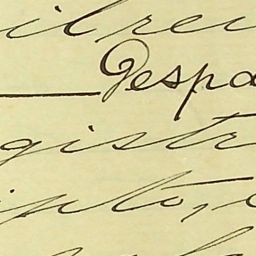 ilrei
Despa
gistr
ipto,